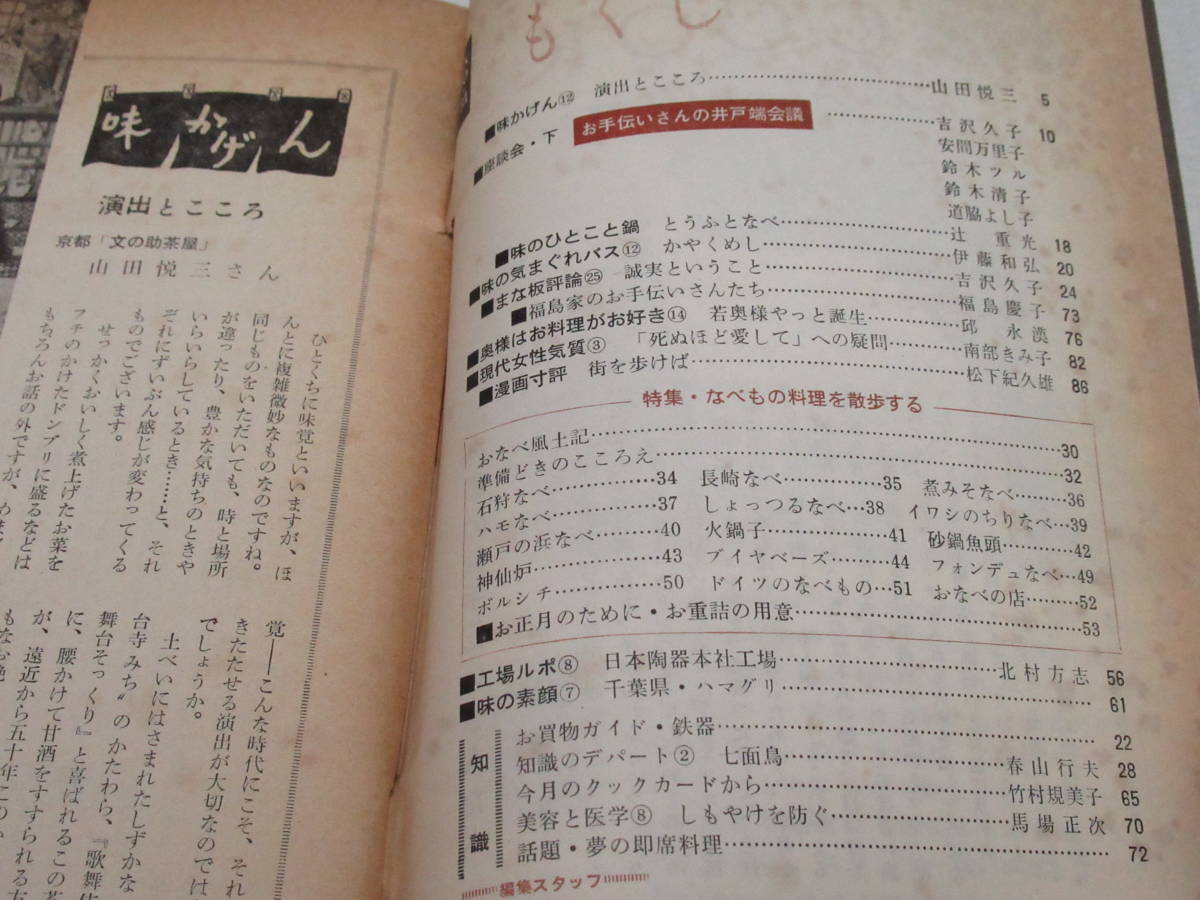 味かげん
演出とこころ
京都「文の助茶屋」
山田悦三さん
ひとくちに味覚といいますが、ほ
んとに複雑微妙なものなのですね。
同じものをいただいても、時と場所
が違ったり、豊かな気持ちのときや
いらいらしているとき……と、それ
ぞれにずいぶん感じが変わってくる
ものでございます。
せっかくおいしく煮上げたお菜を
フチのかけたドンブリに盛るなどは
もちろんお話の外ですが、
覚――こんな時代にこそ、それ
きたたせる演出が大切なのでは
でしょうか。
土べいにはさまれたしずかな
台寺みち〟のかたわら、『歌舞伎
舞台そっくり』と喜ばれるこの茶
に、腰かけて甘酒をすすられる方
が、遠近から五十年このかた
もくじ
■味かげん⑫ 演出とこころ……山田悦三 5
■座談会・下 お手伝いさんの井戸端会議……吉沢久子 10
安間万里子
鈴木ツル
鈴木清子
道脇よし子
■味のひとこと鍋 とうふとなべ……辻重光 18
■味の気まぐれバス⑫ かやくめし……伊藤和弘 20
■まな板評論㉕ 誠実ということ……吉沢久子 24
■福島家のお手伝いさんたち……福島慶子 73
■奥様はお料理がお好き⑭ 若奥様やっと誕生……邱永漢 76
■現代女性気質③ 「死ぬほど愛して」への疑問……南部きみ子 82
■漫画寸評 街を歩けば……松下紀久雄 86
特集・なべもの料理を散歩する
おなべ風土記……30
準備どきのこころえ……32
石狩なべ……34 長崎なべ……35 煮みそなべ……36
ハモなべ……37 しょっつるなべ…38 イワシのちりなべ…39
瀬戸の浜なべ……40 火鍋子……41 砂鍋魚頭……42
神仙炉……43 ブイヤベーズ……44 フォンデュなべ…49
ボルシチ……50 ドイツのなべもの…51 おなべの店……52
■お正月のために・お重詰の用意……53
■工場ルポ⑧ 日本陶器本社工場……北村方志 56
■味の素顔⑦ 千葉県・ハマグリ……61
知識
お買物ガイド・鉄器……22
知識のデパート② 七面鳥……春山行夫 28
今月のクックカードから……竹村規美子 65
美容と医学⑧ しもやけを防ぐ……馬場正次 70
話題・夢の即席料理……72
編集スタッフ